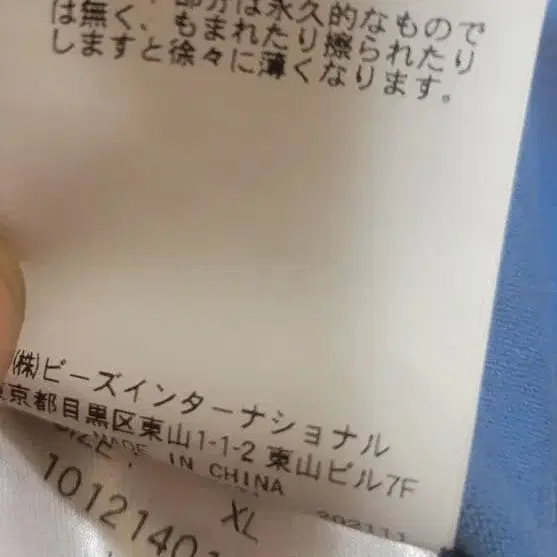 部分は永久的なもので
は無く、もまれたり擦られたり
しますと徐々に薄くなります。
(株)ビーズインターナショナル
東京都目黒区東山1-1-2 東山ビル7F
MADE IN CHINA
XL
202111